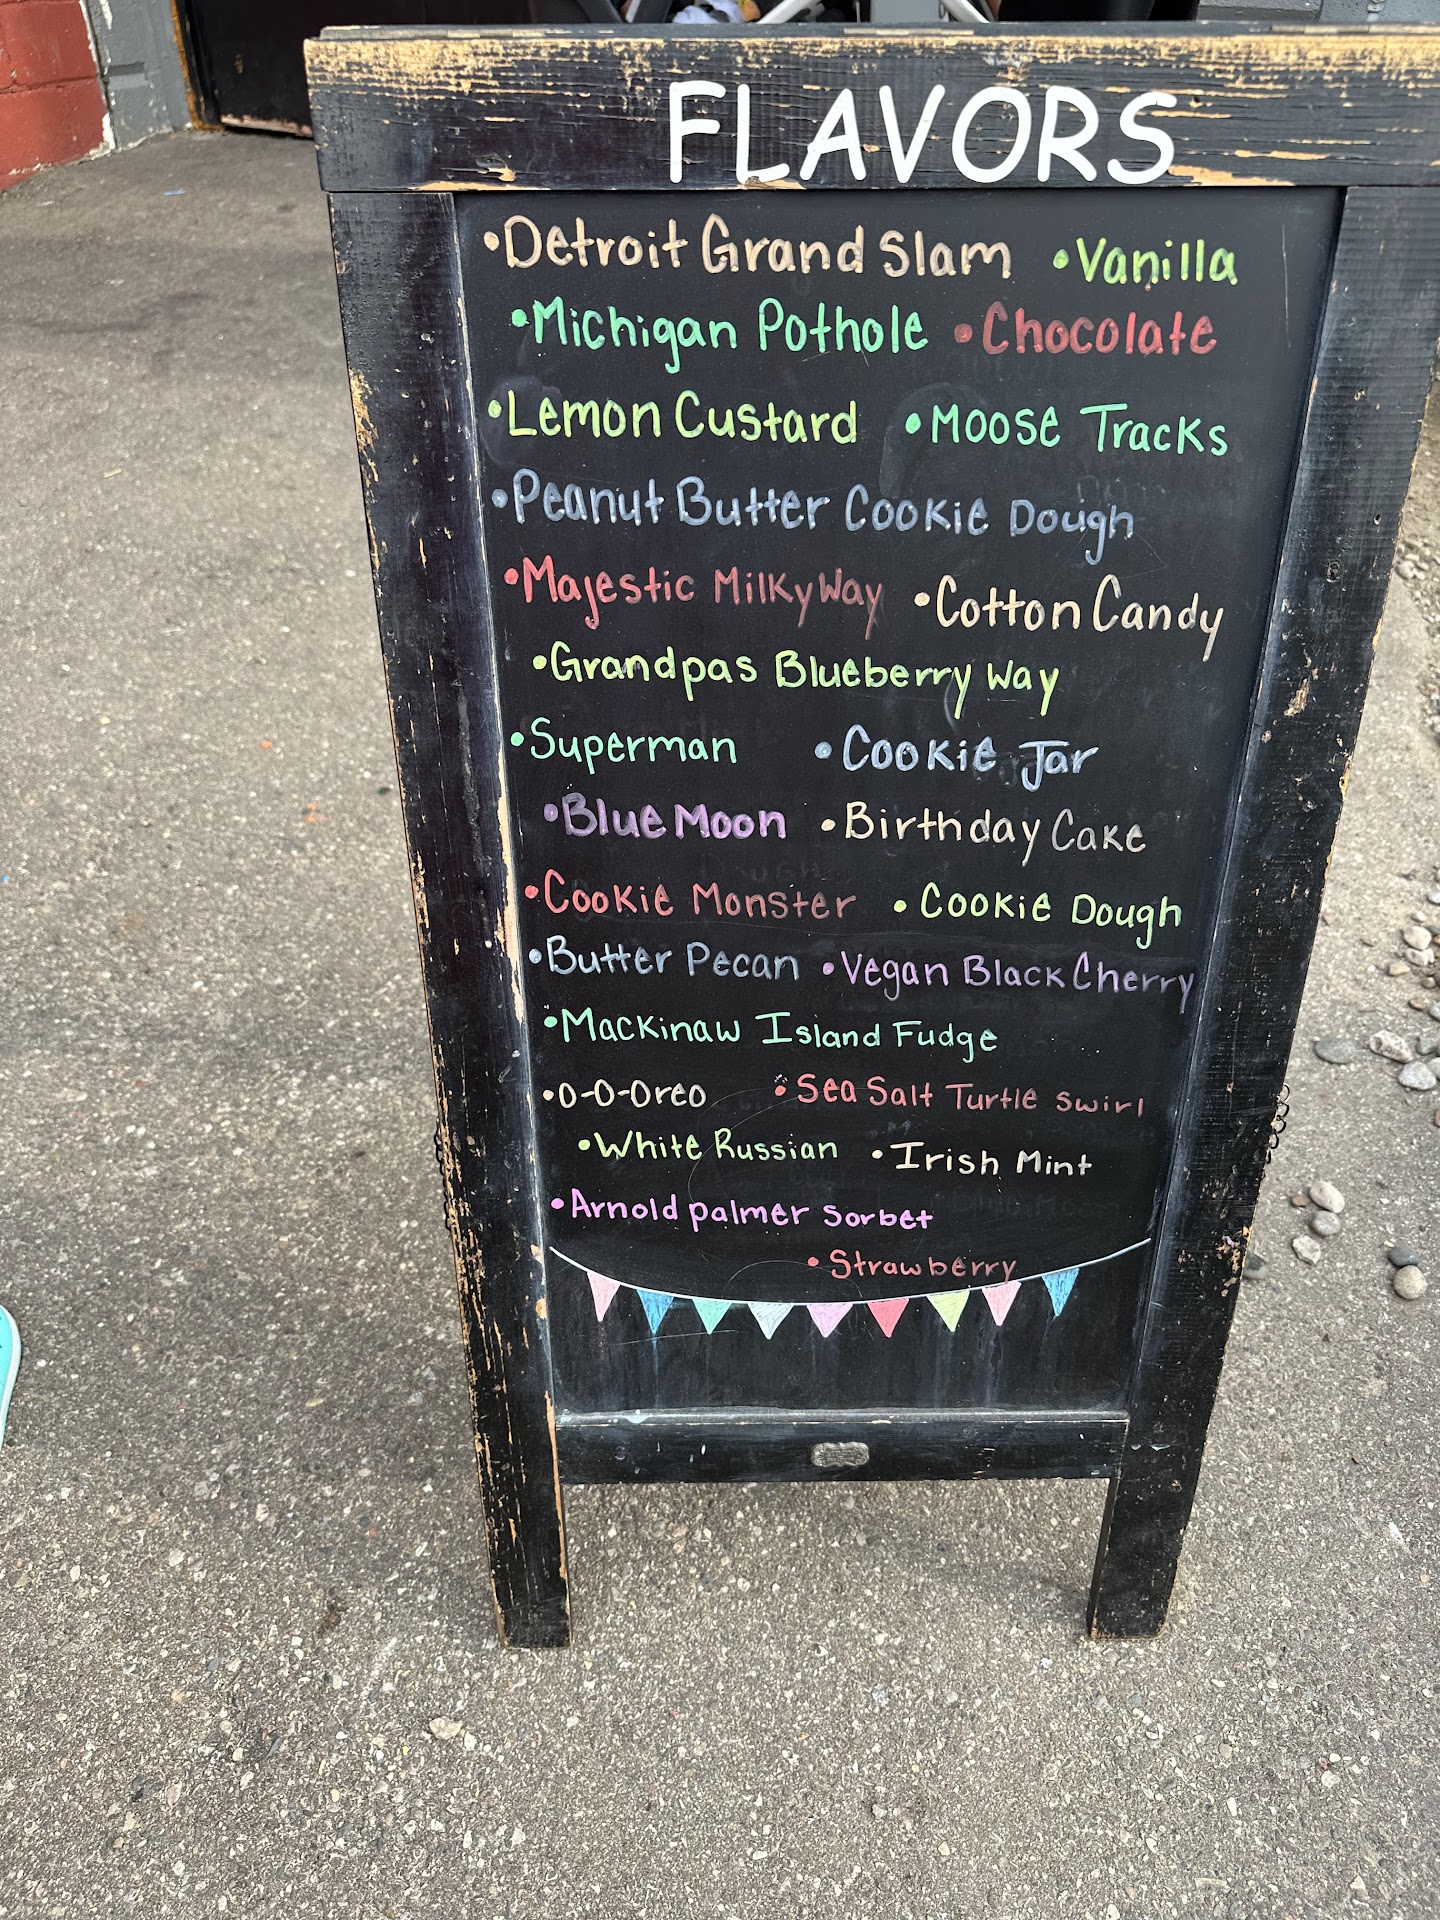 FLAVORS
•Detroit Grand Slam •Vanilla
•Michigan Pothole •Chocolate
•Lemon Custard •Moose Tracks
•Peanut Butter Cookie Dough
•Majestic Milky Way •Cotton Candy
•Grandpas Blueberry Way
•Superman •Cookie Jar
•Blue Moon •Birthday Cake
•Cookie Monster •Cookie Dough
•Butter Pecan •Vegan Black Cherry
•Mackinaw Island Fudge
•O-O-Oreo •Sea Salt Turtle Swirl
•White Russian •Irish Mint
•Arnold palmer Sorbet
•Strawberry